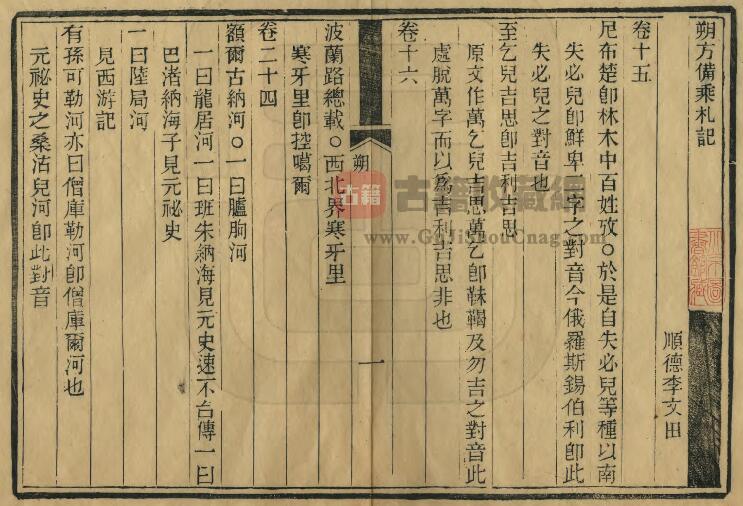 朔方備乘札記
順德李文田
卷十五
尼布楚卽林木中百姓攷〇於是自失必兒等種以南
失必兒卽鮮卑二字之對音今俄羅斯錫伯利卽此
失必兒之對音也
至乞兒吉思卽吉利吉思
原文作萬乞兒吉思萬乞卽靺鞨及勿吉之對音此
處脫萬字而以爲吉利吉思非也
卷十六
朔
一
波蘭路總載〇西北界寒牙里
寒牙里卽控噶爾
卷二十四
額爾古納河〇一曰臚朐河
一曰龍居河一曰班朱納海見元史速不台傳一曰
巴渚納海子見元祕史
一曰陸局河
見西游記
有孫可勒河亦曰僧庫勒河卽僧庫爾河也
元祕史之桑沽兒河卽此對音
古籍 古籍收藏網
www.GuJiShouCnag.com